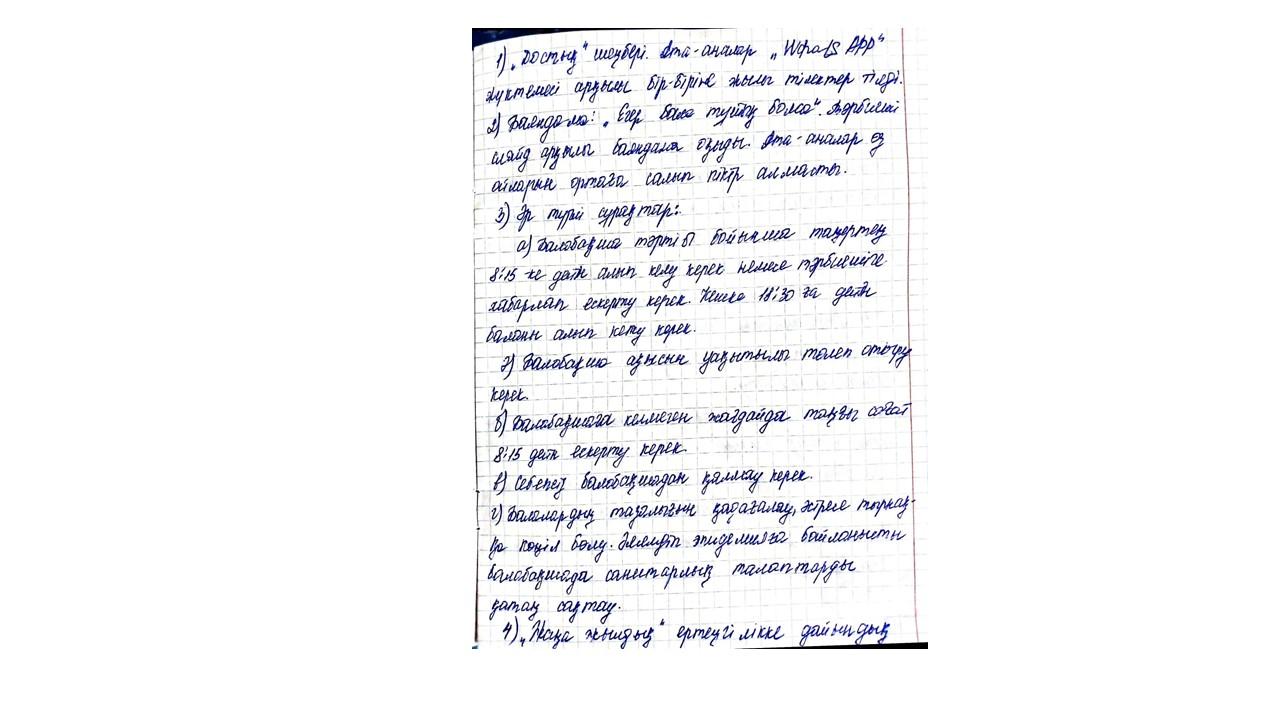 1) „Достық" шеңбері. Ата-аналар „WhatS APP"
жүктемесі арқылы бір-біріне жылы тілектер тіледі.
2) Баяндама: „Егер бала тұйық болса". Тәрбиеші
слайд арқылы баяндама оқыды. Ата-аналар өз
ойларын ортаға салып пікір алмасты.
3) Әр түрлі сұрақтар:
а) Балабақша тәртібі бойынша таңертең
8:15 ке дейін алып келу керек немесе тәрбиешіге
хабарлап ескерту керек. Кешке 18:30 ға дейін
баланы алып кету керек.
ә) Балабақша ақысын уақытылы төлеп отыру
керек.
б) Балабақшаға келмеген жағдайда таңғы сағат
8:15 дейін ескерту керек.
в) Себепсіз балабақшадан қалмау керек.
г) Балалардың тазалығын қадағалау, әсіресе тырнақ-
қа көңіл бөлу. Әлемдік эпидемияға байланысты
балабақшада санитарлық талаптарды
қатаң сақтау.
4) „Жаңа жылдық" ертеңгілікке дайындық